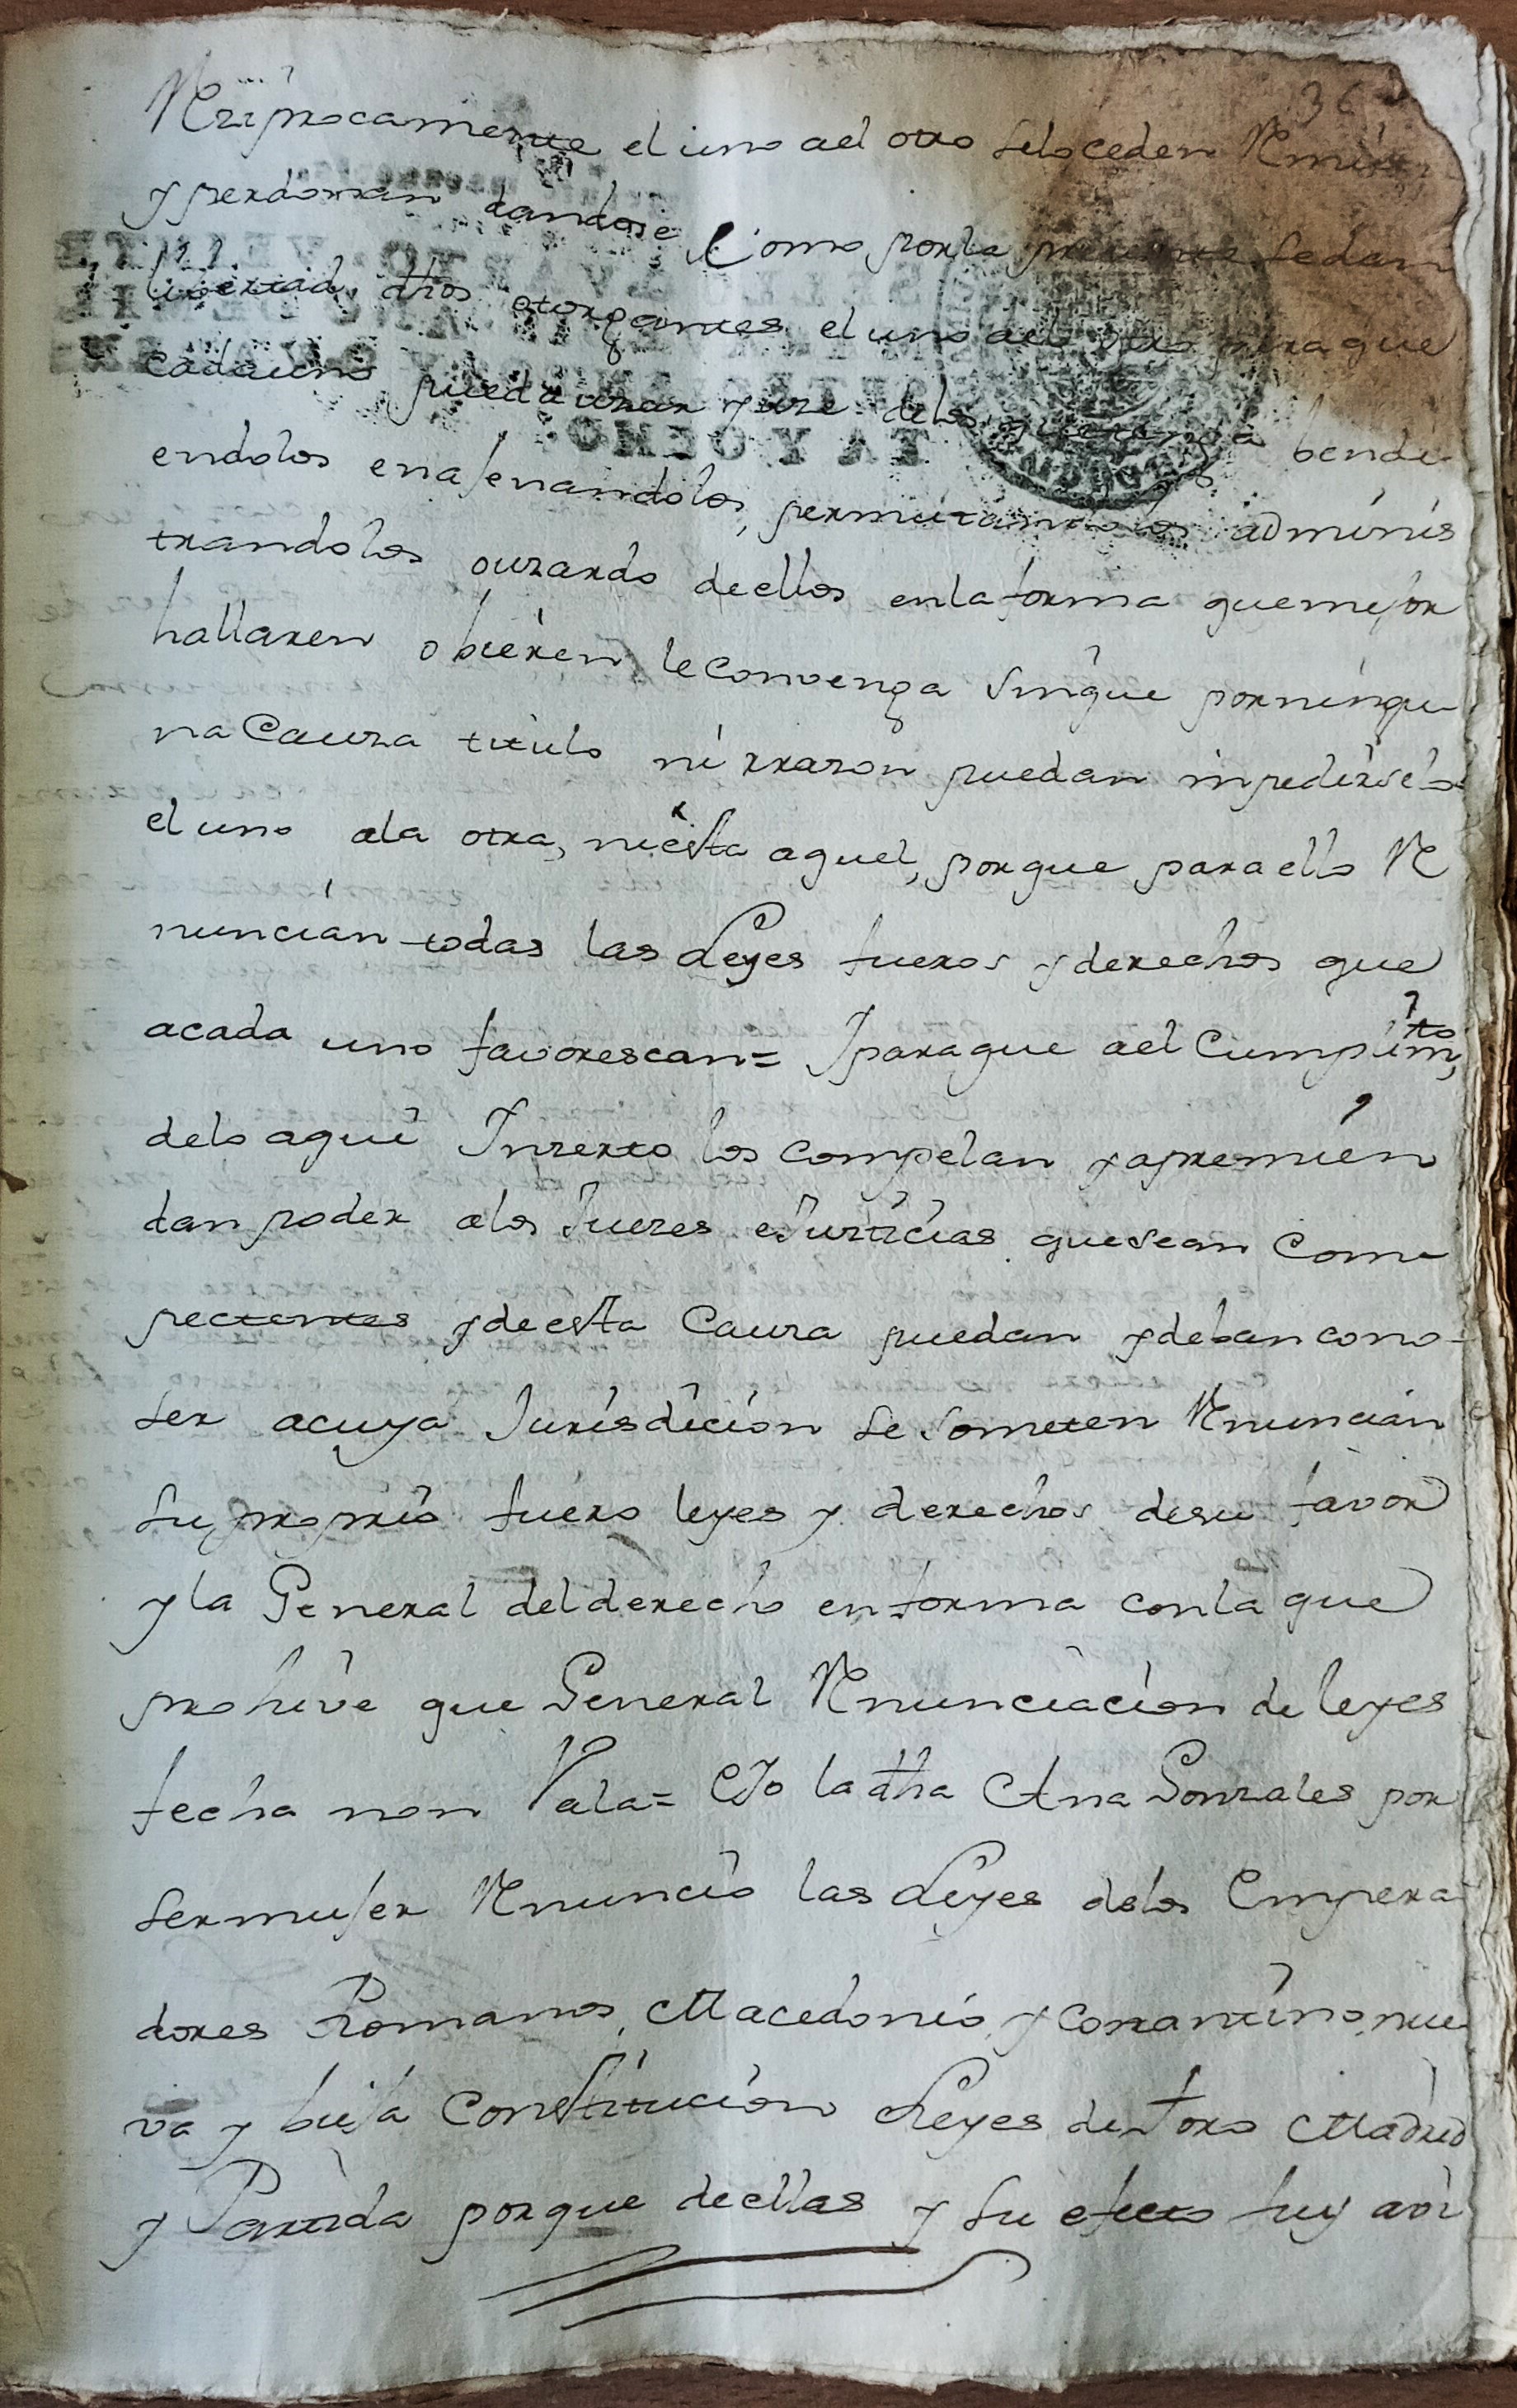 36
Rexiprocamente el uno ael otro selo ceden Remiten
y perdonan dandose Como por la presente se dan
libertad dhos otorgantes el uno ael otro para que
cada uno pueda usar y use delos que tenga bendi
endolos enajenandolos, permutandolos adminis
trandolos ousando de ellos enla forma que mejor
hallaren obieren le Convenga sin que por ningu
na Causa titulo ni rrason puedan inpedirselo
el uno ala otra, ni esta aquel, porque para ello Re
nuncian todas las Leyes fueros y derechos que
acada uno favorescan= Y para que ael Cumplimto
delo aqui Inserto los Compelan y apremien
dan poder alos Jueses eJusticias que sean Com
pectentes y de esta Causa puedan y deban cono-
ser acuya Jurisdicion se someten Renuncian
su proprio fuero leyes y derechos desu favor
y la General del derecho en forma conla que
prohive que General Renunciacion de leyes
fecha non Vala= EYo la dha Ana Gonzales por
ser mujer Renuncio las Leyes delos Empera
dores Romanos, Macedonio, y Costantino, nue
va y bieja Constitucion Leyes de toro Madrid
y Partida porque de ellas y su efecto fuy avi
SELLO QVARTO, VEINTE
TA Y OCHO.